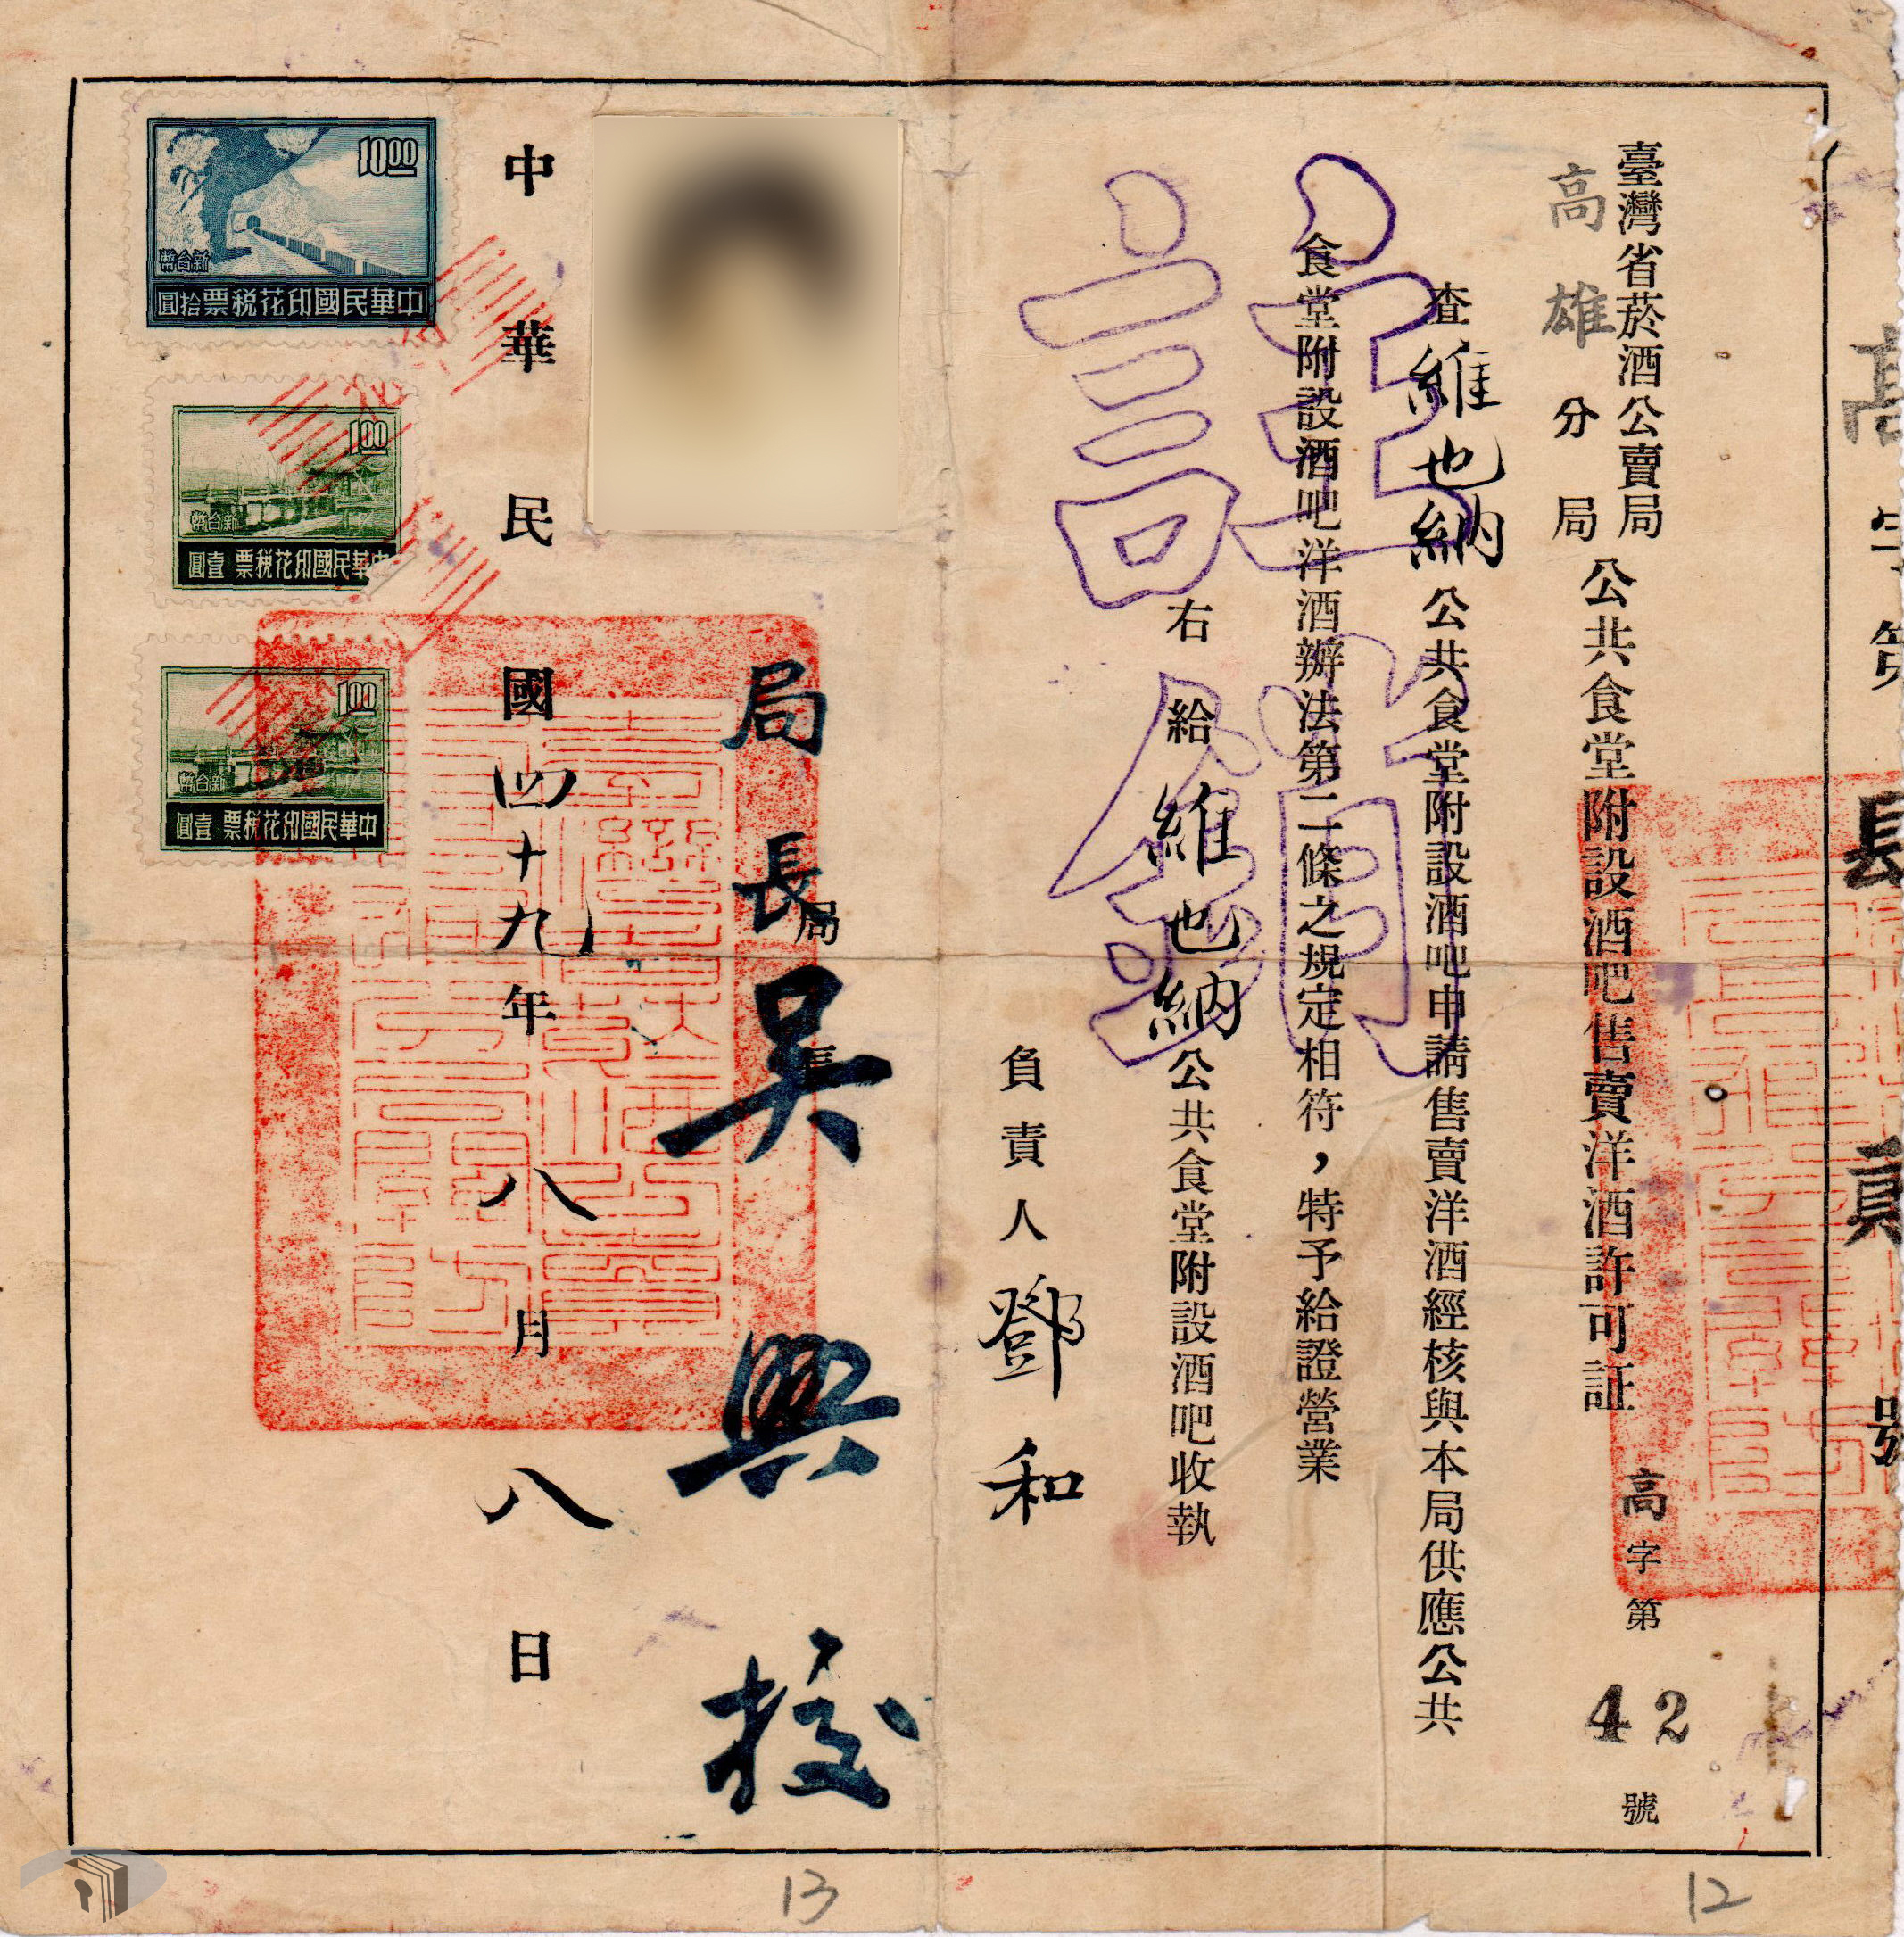 高字第
貳號
臺灣省菸酒公賣局
高雄分局
公共食堂附設酒吧售賣洋酒許可証
高字第42號
查維也納公共食堂附設酒吧申請售賣洋酒經核與本局供應公共
食堂附設酒吧洋酒辦法第二條之規定相符，特予給證營業
右給維也納公共食堂附設酒吧收執
負責人鄧和
註銷
局長
局長吳興
中華民國四十九年八月八日
10.00
新台幣
中華民國印花稅票拾圓
1.00
新台幣
中華民國印花稅票壹圓
1.00
新台幣
中華民國印花稅票壹圓
12
13